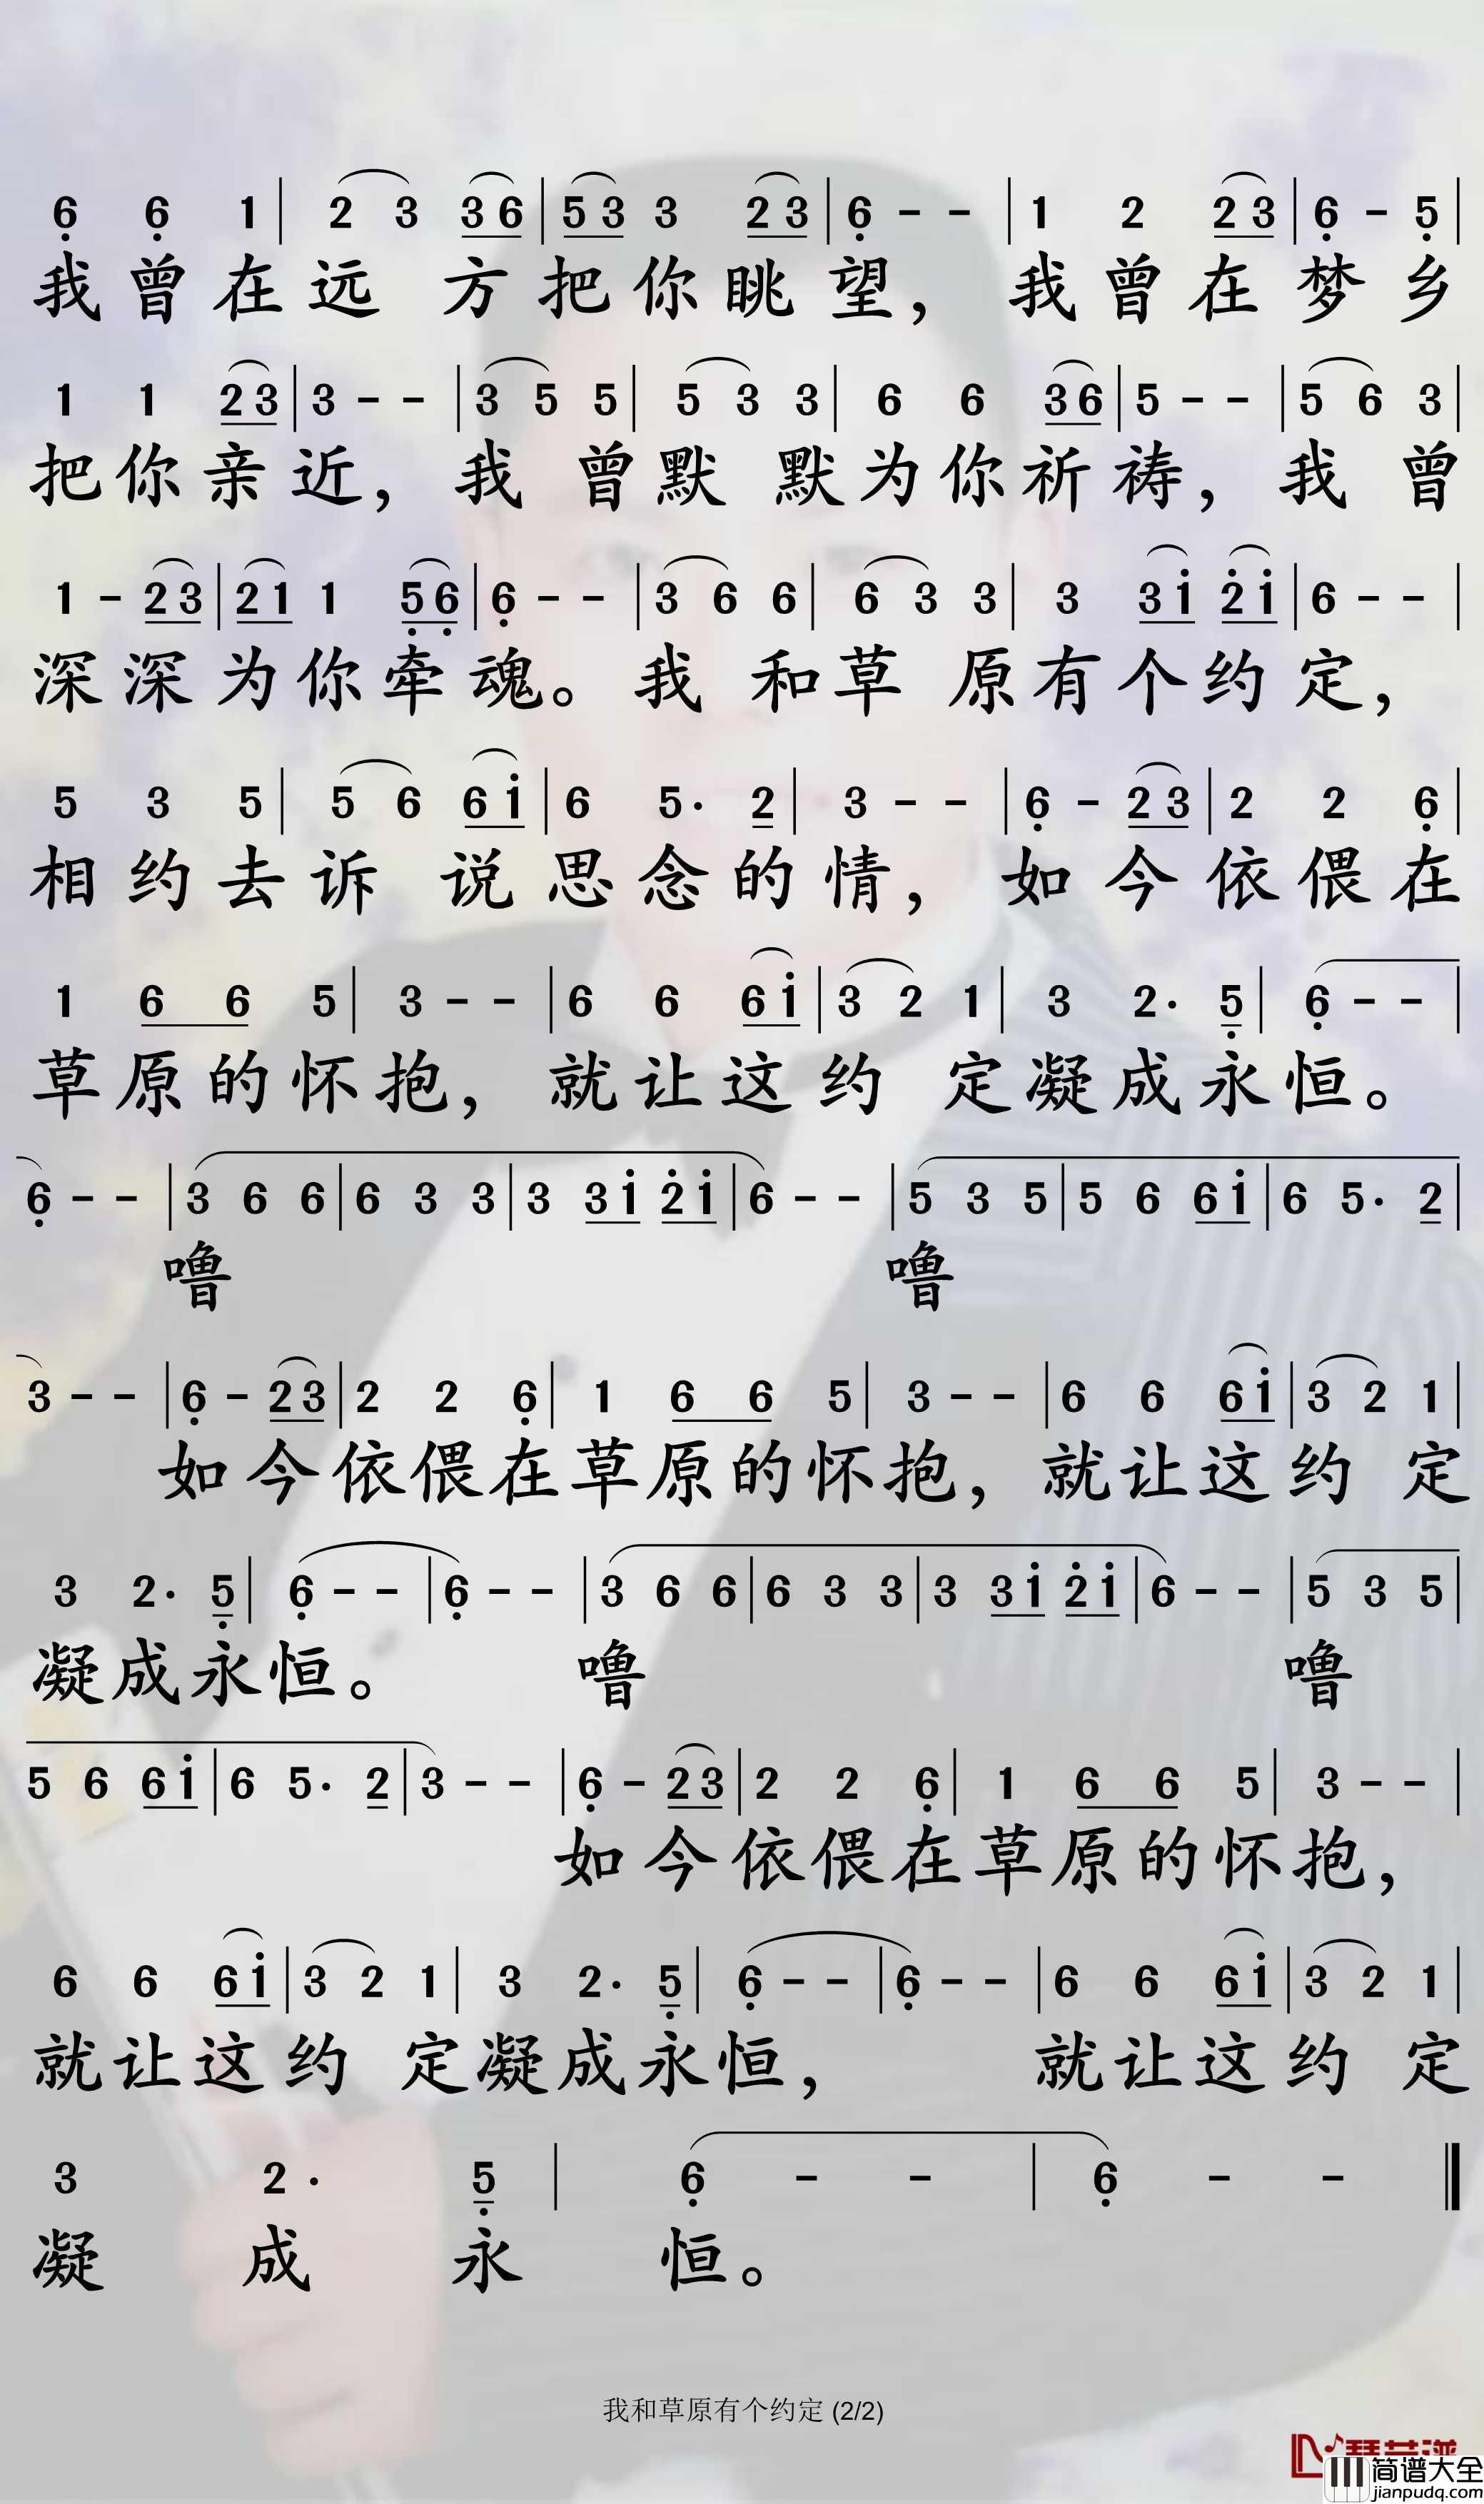 6̣ 6̣ 1 | 2 3 3 6 | 5 3 3 2 3 | 6̣ - - | 1 2 2 3 | 6̣ - 5̣ |
我曾在远 方把你眺望，我曾在梦乡
1 1 2 3 | 3 - - | 3 5 5 | 5 3 3 | 6 6 3 6 | 5 - - | 5 6 3 |
把你亲近，我 曾默 默为你祈祷，我 曾
1 - 2 3 | 2 1 1 5̣ 6̣ | 6̣ - - | 3 6 6 | 6 3 3 | 3 3 1̇ 2̇ 1̇ | 6 - - |
深深为你牵魂。我 和草 原有个约定，
5 3 5 | 5 6 6 1̇ | 6 5· 2 | 3 - - | 6̣ - 2 3 | 2 2 6̣ |
相约去诉 说思念的情，如今依偎在
1 6 6 5 | 3 - - | 6 6 6 1̇ | 3 2 1 | 3 2· 5̣ | 6̣ - - |
草原的怀抱，就让这约 定凝成永恒。
6̣ - - | 3 6 6 | 6 3 3 | 3 3 1̇ 2̇ 1̇ | 6 - - | 5 3 5 | 5 6 6 1̇ | 6 5· 2 |
噜 噜
3 - - | 6̣ - 2 3 | 2 2 6̣ | 1 6 6 5 | 3 - - | 6 6 6 1̇ | 3 2 1 |
如今依偎在草原的怀抱，就让这约 定
3 2· 5̣ | 6̣ - - | 6̣ - - | 3 6 6 | 6 3 3 | 3 3 1̇ 2̇ 1̇ | 6 - - | 5 3 5 |
凝成永恒。 噜 噜
5 6 6 1̇ | 6 5· 2 | 3 - - | 6̣ - 2 3 | 2 2 6̣ | 1 6 6 5 | 3 - - |
如今依偎在草原的怀抱，
6 6 6 1̇ | 3 2 1 | 3 2· 5̣ | 6̣ - - | 6̣ - - | 6 6 6 1̇ | 3 2 1 |
就让这约 定凝成永恒， 就让这约 定
3 2· 5̣ | 6̣ - - | 6̣ - - ‖
凝 成 永 恒。
我和草原有个约定 (2/2)
简谱大全
jianpudq.com